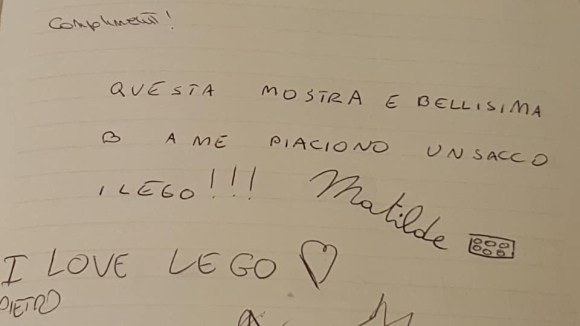 Complimenti!
QUESTA MOSTRA E BELLISIMA
A ME PIACIONO UN SACCO
I LEGO!!! Matilde
I LOVE LEGO
PIETRO